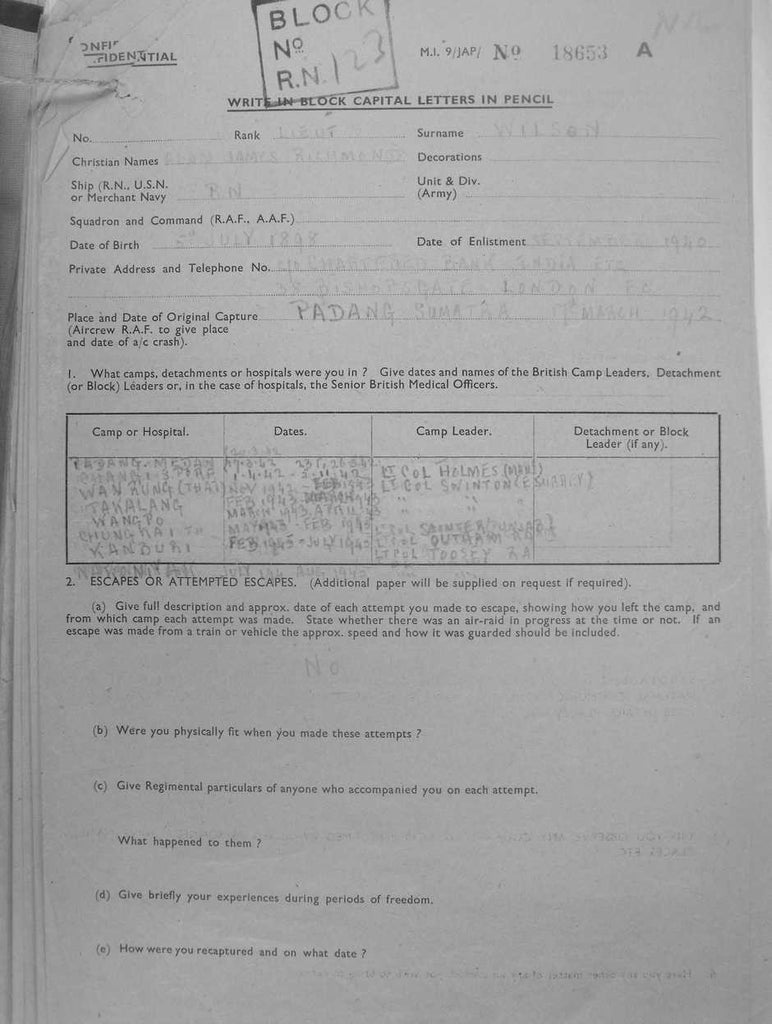 BLOCK
No
R.N. 123
CONFIDENTIAL
M.I. 9/JAP/ No 18653 A
WRITE IN BLOCK CAPITAL LETTERS IN PENCIL
No. Rank LIEUT Surname WILSON
Christian Names JAMES RICHMOND Decorations
Ship (R.N., U.S.N. or Merchant Navy RN Unit & Div. (Army)
Squadron and Command (R.A.F., A.A.F.)
Date of Birth 5th JULY 1898 Date of Enlistment SEPTEMBER 1940
Private Address and Telephone No. CHARTERED BANK INDIA ETC
38 BISHOPSGATE LONDON E.C.
Place and Date of Original Capture PADANG SUMATRA 17th MARCH 1942
(Aircrew R.A.F. to give place
and date of a/c crash).
1. What camps, detachments or hospitals were you in ? Give dates and names of the British Camp Leaders, Detachment
(or Block) Leaders or, in the case of hospitals, the Senior British Medical Officers.
Camp or Hospital. Dates. Camp Leader. Detachment or Block Leader (if any).
PADANG
CHANGI LT COL HOLMES
WAN RUNG (THAI) NOV 1942 - FEB 1943 LT COL SWINTON (E SURREY)
TAKALANG FEB 1943 MARCH 1943 " "
WANGPO MARCH 1943 APRIL 43 " "
CHUNGKAI MAY 43 - FEB 1945 LT COL OUTRAM
KANBURI FEB 1945 - JULY 1945 LT COL TOOSEY RA
2. ESCAPES OR ATTEMPTED ESCAPES. (Additional paper will be supplied on request if required).
(a) Give full description and approx. date of each attempt you made to escape, showing how you left the camp, and
from which camp each attempt was made. State whether there was an air-raid in progress at the time or not. If an
escape was made from a train or vehicle the approx. speed and how it was guarded should be included.
No
(b) Were you physically fit when you made these attempts ?
(c) Give Regimental particulars of anyone who accompanied you on each attempt.
What happened to them ?
(d) Give briefly your experiences during periods of freedom.
(e) How were you recaptured and on what date ?